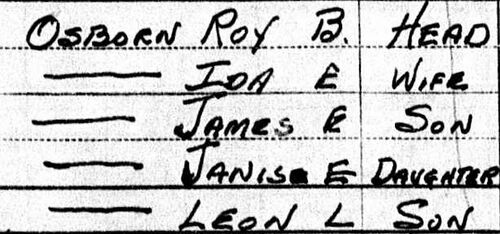 OSBORN ROY B. HEAD
—— IDA E WIFE
—— JAMES E SON
—— JANISE E DAUGHTER
—— LEON L SON